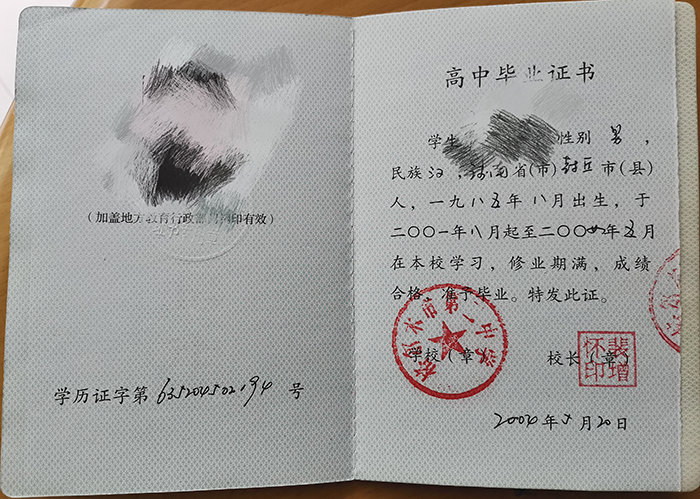 (加盖地方教育行政部门钢印有效)
学历证字第 号
高中毕业证书
学生 性别 男,
民族 汉, 河南省(市) 封丘 市(县)
人,一九八五年八月出生,于
二〇〇一年八月起至二〇〇四年五月
在本校学习,修业期满,成绩
合格,准予毕业。特发此证。
学校(章) 校长(章)
市第一中学
裴增怀印
2004年5月20日